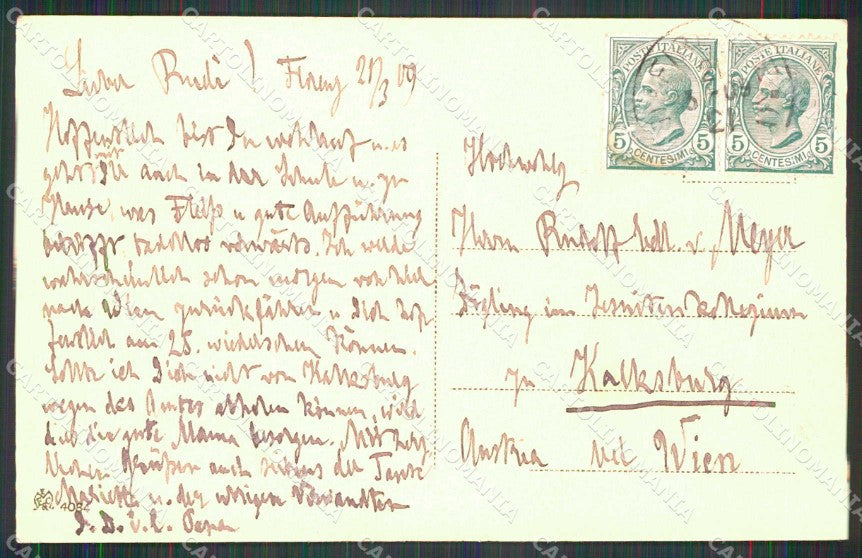 Lieber Rudi! Florenz 21/3 09
Hoffentlich bist Du wohlauf u. es
geht mit Dir auch in der Schule u. zu
Hause, was Fleiß u gute Aufführung
betrifft tadellos vorwärts. Ich werde
wahrscheinlich schon morgen
nach Wien zurückfahren u Dich hof
fentlich am 25. wiedersehen können.
Sollte ich Dich nicht von Kalksburg
wegen des Amtes abholen können, wird
dies die gute Mama besorgen. Mit herz
lichen Grüßen auch seitens der Tante
Marietta u. der übrigen Verwandten
D. D. v. l. Papa
4034
POSTE ITALIANE
5 CENTESIMI 5
POSTE ITALIANE
5 CENTESIMI 5
Hochwohlg
Herrn Rudolf Edl. v. Meyer
Zögling im Jesuiten Kollegium
zu Kalksburg
Austria bei Wien
CARTOLINOMANIA